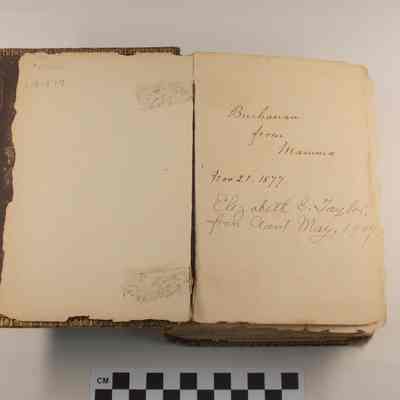 Buchanan
from
Mamma
Nov 21. 1877
Elizabeth C. Taylor,
from Aunt May,
CM